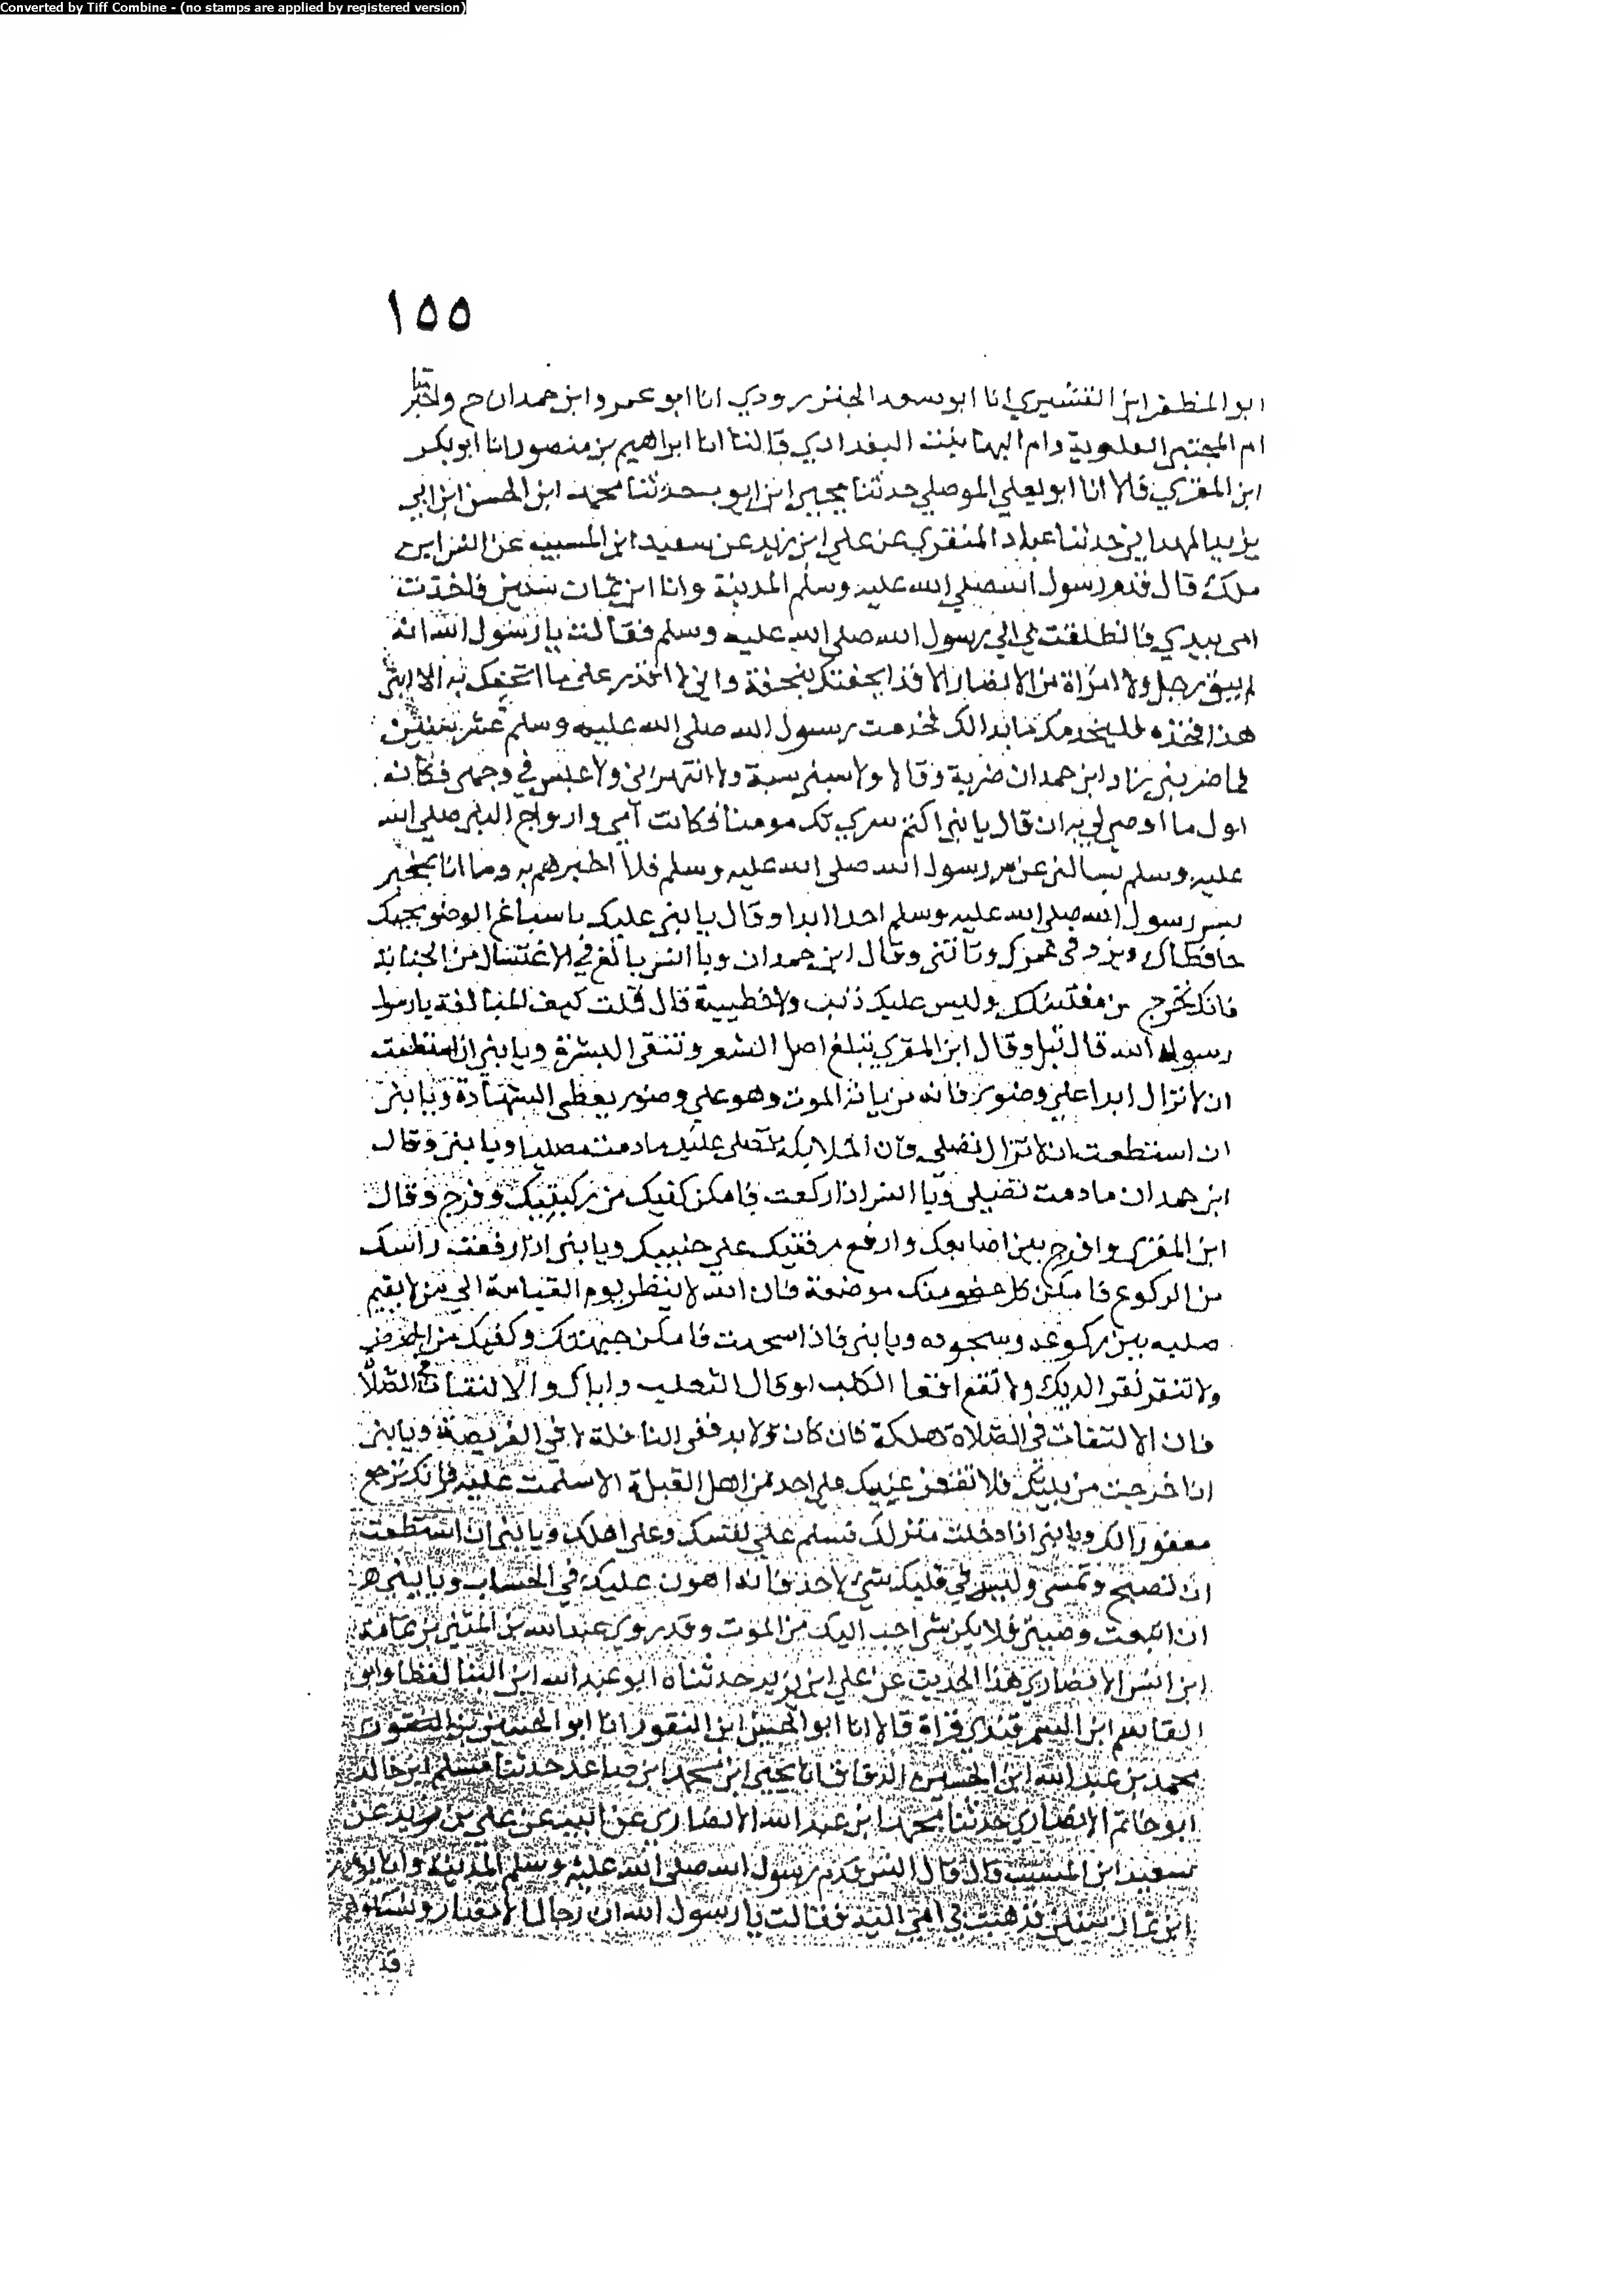 Converted by Tiff Combine - (no stamps are applied by registered version)
١٥٥
ابو المظفر ابن القشيري انا ابو سعد الجنزرودي انا ابو عمرو ابن حمدان ح واخبرتنا
ام المجتبى العلوية وام البها بنت البغدادي قالتا انا ابراهيم بن منصور انا ابو بكر
ابن المقري قالا انا ابو يعلي الموصلي حدثنا يحيى ابن ايوب حدثنا محمد ابن الحسن ابن ابي
يزيد الهمداني حدثنا عباد المنقري عن علي ابن زيد عن سعيد ابن المسيب عن انس ابن
ملك قال قدم رسول الله صلي الله عليه وسلم المدينة وانا ابن ثمان سنين فاخذت
امي بيدي فانطلقت بي الي رسول الله صلى الله عليه وسلم فقالت يا رسول الله انه
لم يبق رجل ولا امراة من الانصار الا قد اتحفتك بتحفة واني لا اقدر على ما اتحفك به الا ابني
هذا فخذه فليخدمك ما بدا لك فخدمت رسول الله صلى الله عليه وسلم عشر سنين
فما ضربني زاد ابن حمدان ضربة وقالا ولا سبني سبة ولا انتهرني ولا عبس في وجهي فكان
اول ما اوصي لي به ان قال يا بني اكتم سري تك مومنا فكانت امي وازواج النبي صلي الله
عليه وسلم يسالنني عن سر رسول الله صلى الله عليه وسلم فلا اخبرهم به وما انا بمخبر
بسر رسول الله صلى الله عليه وسلم احدا ابدا وقال يا بني عليك باسباغ الوضو يحبك
حافظاك ويزد في عمرك وقال ابن حمدان ويا انس بالغ في الاغتسال من الجنابة
فانك تخرج من مغتسلك وليس عليك ذنب ولا خطيية قال قلت كيف المبالغة يا رسول
رسول الله قال تبل وقال ابن المقري تبلغ اصل الشعر وتنقي البشرة ويا بني ان استطعت
ان لا تزال ابدا علي وضو فانه من ياته الموت وهو علي وضو يعطى الشهادة ويا بني
ان استطعت ان لا تزال تصلي فان الملايكة تصلى عليك ما دمت مصليا ويا بني وقال
ابن حمدان ما دمت تصلي ويا انس اذا ركعت فامكن كفيك من ركبتيك وفرج وقال
ابن المقري وافرج بين اصابعك وارفع مرفقيك علي جنبيك ويا بني اذا رفعت راسك
من الركوع فامكن كل عضو منك موضعه فان الله لا ينظر يوم القيامة الي من لا يقيم
صلبه بين ركوعه وسجوده ويا بني فاذا سجدت فامكن جبهتك وكفيك من الارض
ولا تنقر نقر الديك ولا تقع اقعا الكلب او قال الثعلب واياك والالتفات في الصلاة
فان الالتفات في الصلاة هلكة فان كان ولا بد ففي النافلة لا في الفريضة ويا بني
اذا خرجت من بيتك فلا تقعن عينيك على احد من اهل القبلة الا سلمت عليه فانك ترجع
مغفورا لك ويا بني اذا دخلت منزلك فسلم علي نفسك وعلى اهلك ويا بني ان استطعت
ان تصبح وتمسي وليس في قلبك شي لاحد فانه اهون عليك في الحساب ويا بني
ان اتبعت وصيتي فلا يكن شي احب اليك من الموت وقد روي عبد الله بن المثني بن ثمامة
ابن انس الانصاري هذا الحديث عن علي ابن زيد حدثناه ابو عبد الله ابن البنا لفظا وابو
القاسم ابن السمرقندي قراة قالا انا ابو الحسين ابن النقور انا ابو الحسين
محمد بن عبد الله ابن الحسين الدقاق انا يحيى ابن محمد ابن صاعد حدثنا مسلم ابن خالد
ابو حاتم الانصاري حدثنا محمد ابن عبد الله الانصاري عن ابيه عن علي بن زيد عن
سعيد ابن المسيب قال قال انس قدم رسول الله صلى الله عليه وسلم المدينة وانا يومئذ
ابن ثمان سنين فذهبت بي امي اليه فقالت يا رسول الله ان رجال الانصار ونساوهم
قد